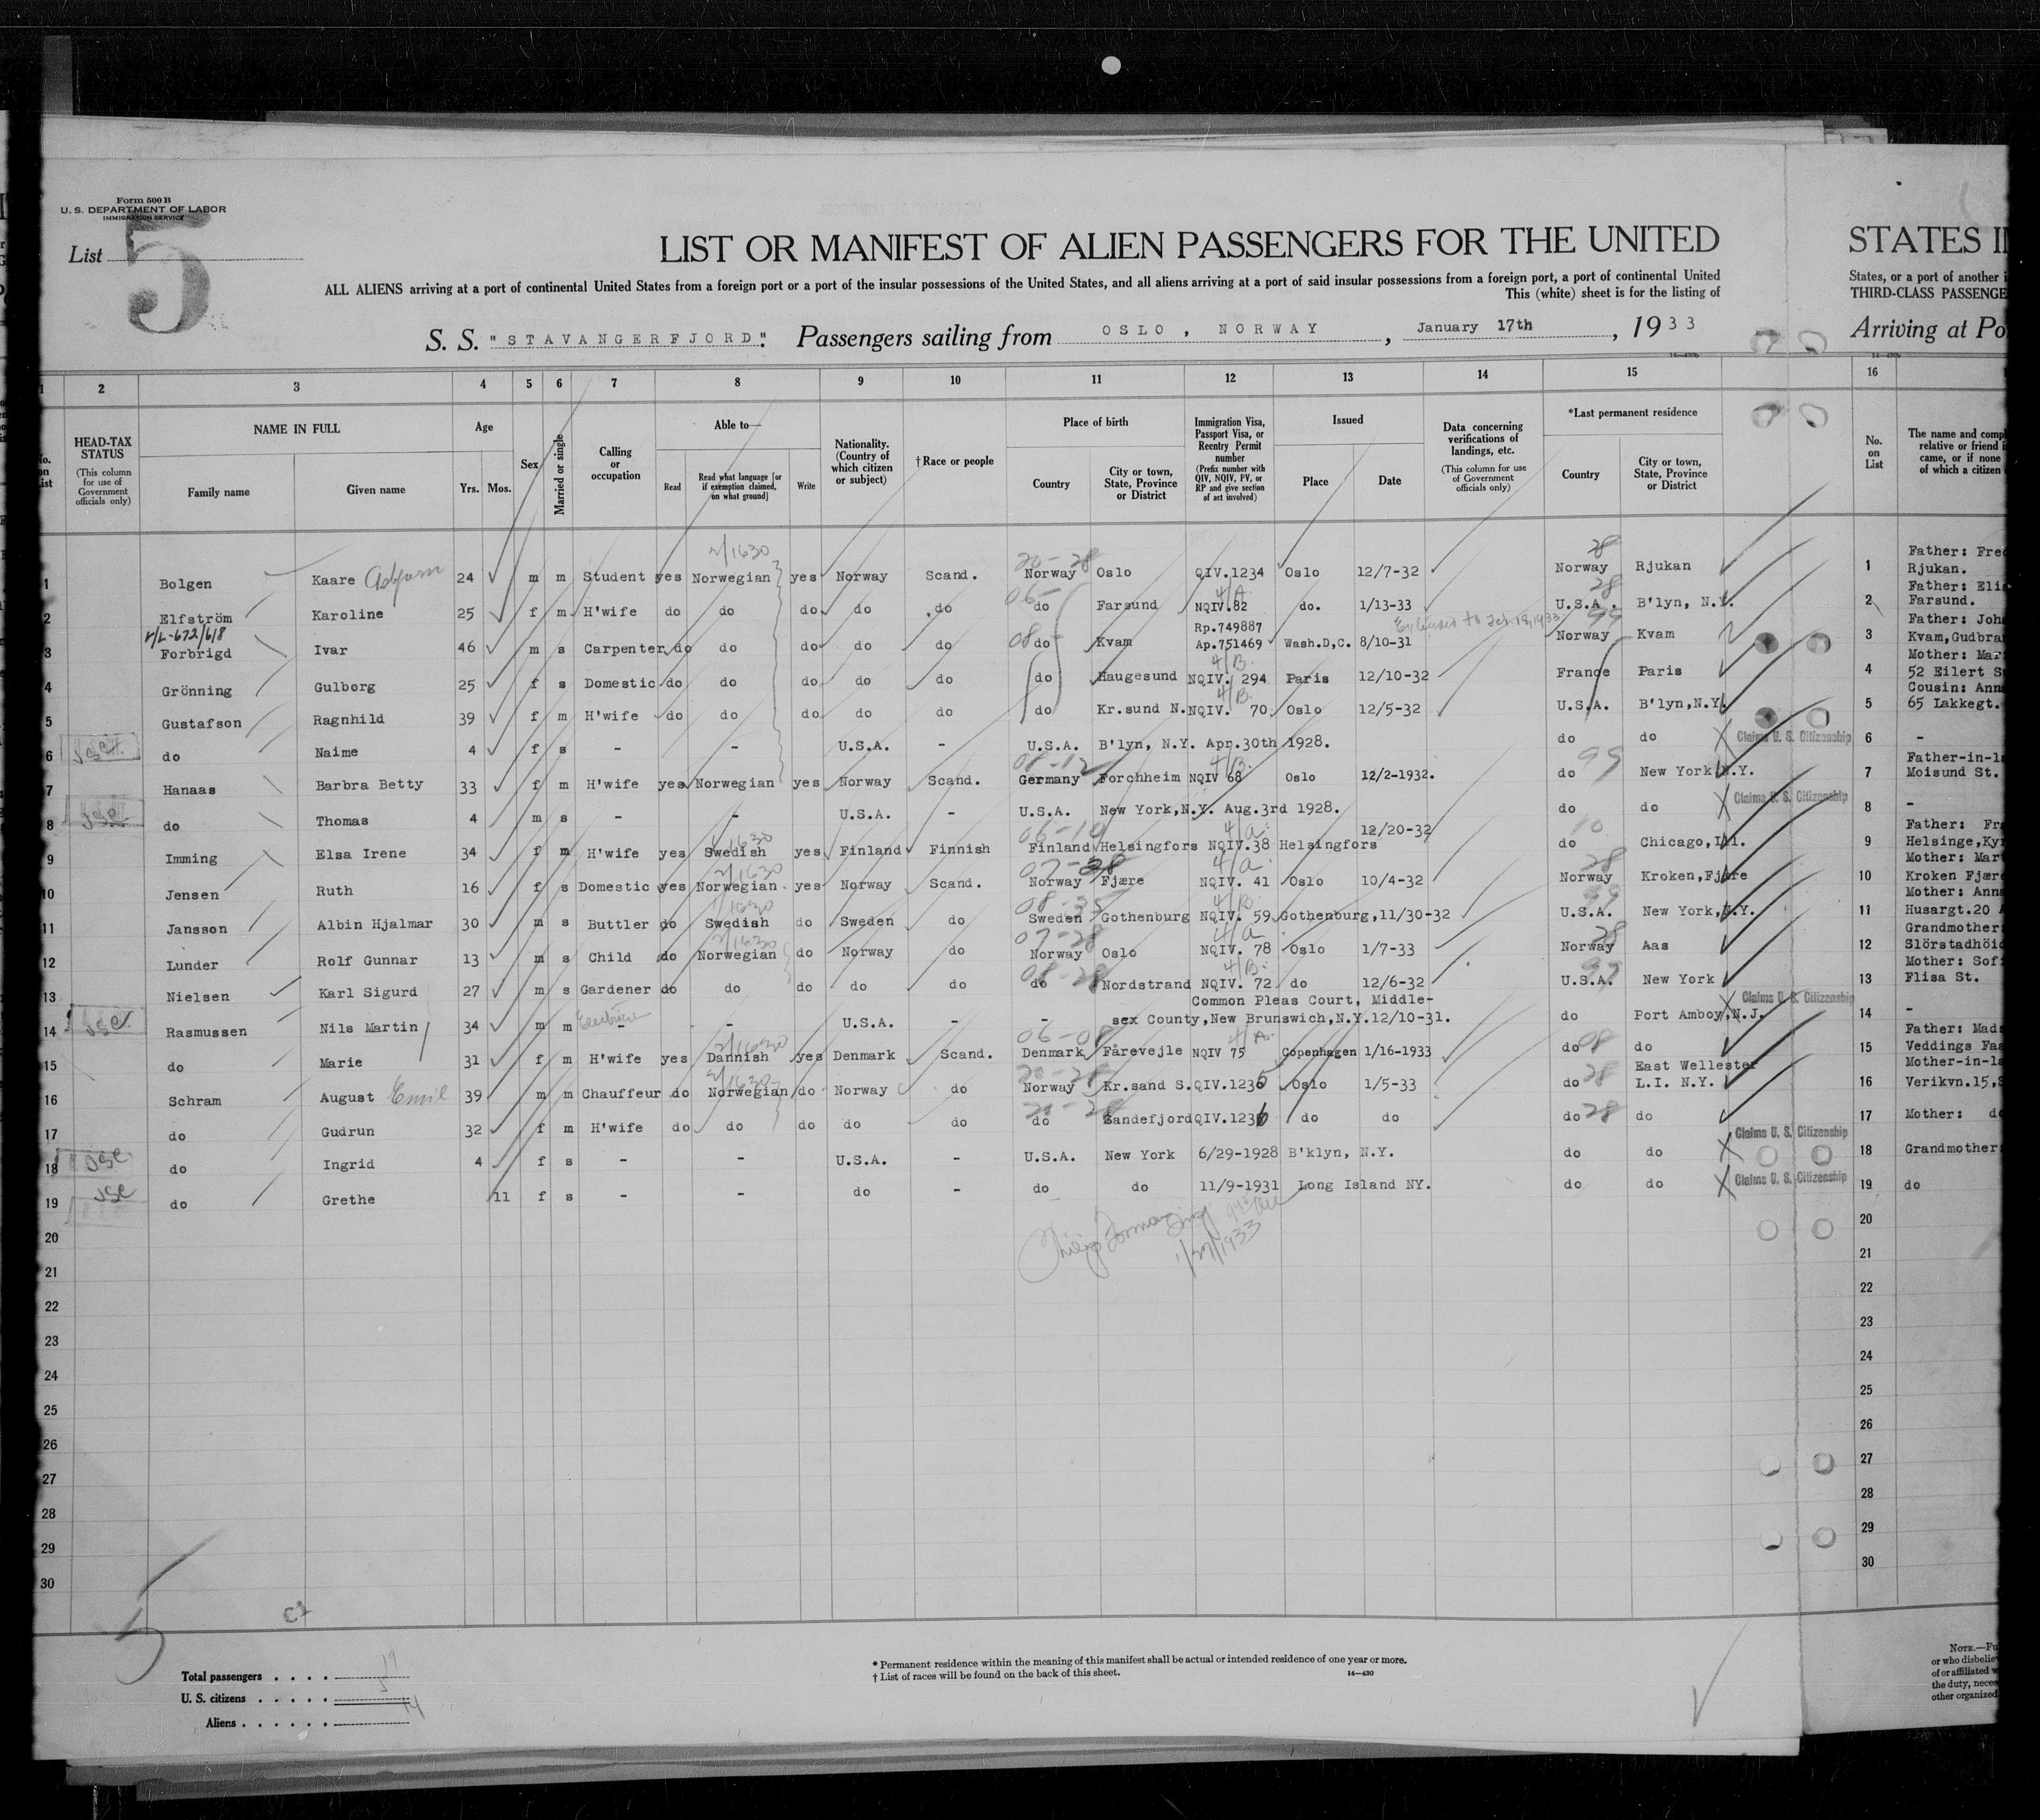 Form 500 B
U. S. DEPARTMENT OF LABOR
IMMIGRATION SERVICE
List 5
LIST OR MANIFEST OF ALIEN PASSENGERS FOR THE UNITED
STATES I
ALL ALIENS arriving at a port of continental United States from a foreign port or a port of the insular possessions of the United States, and all aliens arriving at a port of said insular possessions from a foreign port, a port of continental United
States, or a port of another
This (white) sheet is for the listing of
THIRD-CLASS PASSENGE
S. S. "STAVANGERFJORD". Passengers sailing from OSLO, NORWAY, January 17th, 1933
Arriving at Po
14—430b
1 2 3 4 5 6 7 8 9 10 11 12 13 14 15 16
No. on List
HEAD-TAX STATUS (This column for use of Government officials only)
NAME IN FULL
Family name Given name
Age
Yrs. Mos.
Sex
Married or single
Calling or occupation
Able to—
Read Read what language [or if exemption claimed, on what ground] Write
Nationality. (Country of which citizen or subject)
†Race or people
Place of birth
Country City or town, State, Province or District
Immigration Visa, Passport Visa, or Reentry Permit number (Prefix number with QIV, NQIV, PV, or RP and give section of act involved)
Issued
Place Date
Data concerning verifications of landings, etc. (This column for use of Government officials only)
*Last permanent residence
Country City or town, State, Province or District
No. on List
The name and comp
relative or friend i
came, or if none
of which a citizen
1 Bolgen Kaare 24 m m Student yes Norwegian 2/1630 yes Norway Scand. 20-28 Norway Oslo QIV.1234 Oslo 12/7-32 28 Norway Rjukan 1 Father: Fre Rjukan.
2 Elfström Karoline 25 f m H'wife do do do do do 06- do Farsund 4/A NQIV.82 do. 1/13-33 28 U.S.A. B'lyn, N.Y. 2 Father: Eli Farsund.
3 Forbrigd Ivar 46 m s Carpenter do do do do do 08- do Kvam Rp.749887 Ap.751469 Wash.D,C. 8/10-31 99 Norway Kvam 3 Father: Joh Kvam,Gudbra
4 Grönning Gulborg 25 f s Domestic do do do do do do Haugesund 4/B. NQIV. 294 Paris 12/10-32 France Paris 4 Mother: Mar 52 Eilert S
5 Gustafson Ragnhild 39 f m H'wife do do do do do do Kr.sund N. 4/B. NQIV. 70 Oslo 12/5-32 U.S.A. B'lyn,N.Y. 5 Cousin: Ann 65 Lakkegt.
6 USC do Naime 4 f s - - U.S.A. - U.S.A. B'lyn, N.Y. Apr.30th 1928. do do X Claims U. S. Citizenship 6 -
7 Hanaas Barbra Betty 33 f m H'wife yes Norwegian yes Norway Scand. 08-12 Germany Forchheim 4/B. NQIV 68 Oslo 12/2-1932. do 99 New York N.Y. 7 Father-in-l Moisund St.
8 USC do Thomas 4 m s - - U.S.A. - U.S.A. New York,N.Y. Aug.3rd 1928. do do X Claims U. S. Citizenship 8 -
9 Imming Elsa Irene 34 f m H'wife yes Swedish yes Finland Finnish 06-10 Finland Helsingfors 4/a. NQIV.38 Helsingfors 12/20-32 do 10 Chicago,Ill. 9 Father: Fr Helsinge,Ky
10 Jensen Ruth 16 f s Domestic yes Norwegian yes Norway Scand. 07-28 Norway Fjære 4/a. NQIV. 41 Oslo 10/4-32 28 Norway Kroken,Fjære 10 Mother: Mar Kroken Fjær
11 Jansson Albin Hjalmar 30 m s Buttler do Swedish do Sweden do Sweden Gothenburg NQIV. 59 Gothenburg,11/30-32 99 U.S.A. New York,N.Y. 11 Mother: Ann Husargt.20
12 Lunder Rolf Gunnar 13 m s Child do Norwegian do Norway do 07-28 Norway Oslo 4/a NQIV. 78 Oslo 1/7-33 28 Norway Aas 12 Grandmother Slörstadhöi
13 Nielsen Karl Sigurd 27 m s Gardener do do do do do 08-28 do Nordstrand 4/B. NQIV. 72 do 12/6-32 U.S.A. New York 13 Mother: Sof Flisa St.
14 USC Rasmussen Nils Martin 34 m m - - U.S.A. - Common Pleas Court, Middle-sex County,New Brunswich,N.Y.12/10-31. do Port Amboy,N.J. X Claims U. S. Citizenship 14 -
15 do Marie 31 f m H'wife yes Dannish yes Denmark Scand. 06-08 Denmark Fårevejle 4/A. NQIV 75 Copenhagen 1/16-1933 do 08 do 15 Father: Mad Veddings Fa
16 Schram August Emil 39 m m Chauffeur do Norwegian do Norway do 20-28 Norway Kr.sand S. QIV.1235 Oslo 1/5-33 do 28 East Wellester L.I. N.Y. 16 Mother-in-l Verikvn.15,
17 do Gudrun 32 f m H'wife do do do do do 20-28 do Sandefjord QIV.1236 do do do 28 do 17 Mother: d
18 USC do Ingrid 4 f s - - U.S.A. - U.S.A. New York 6/29-1928 B'klyn, N.Y. do do X Claims U. S. Citizenship 18 Grandmother
19 USC do Grethe 11 f s - - do - do do 11/9-1931 Long Island NY. do do X Claims U. S. Citizenship 19 do
20 20
1/27/1933
21 21
22 22
23 23
24 24
25 25
26 26
27 27
28 28
29 29
30 30
5
Total passengers . . . . 19
U. S. citizens . . . . . 5
Aliens . . . . . . 14
* Permanent residence within the meaning of this manifest shall be actual or intended residence of one year or more.
† List of races will be found on the back of this sheet. 14—430
NOTE.—Fu
or who disbelie
of or affiliated w
the duty, neces
other organized